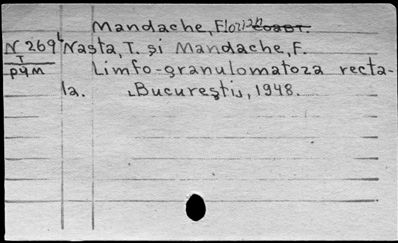 Mandache, Florian
N 269 Nasta, T. și Mandache, F.
T
рум Limfo-granulomatoza recta-
la. București, 1948.